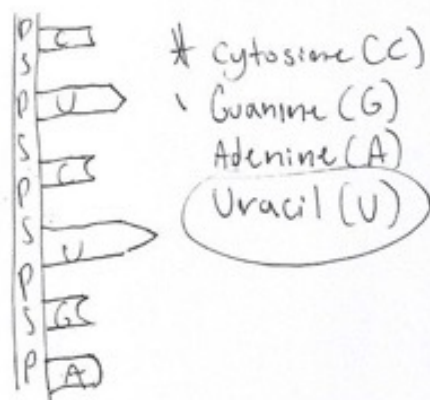 P
C
S
P
U
S
C
P
S
U
P
S
G
P
A
* Cytosine (C)
Guanine (G)
Adenine (A)
Uracil (U)